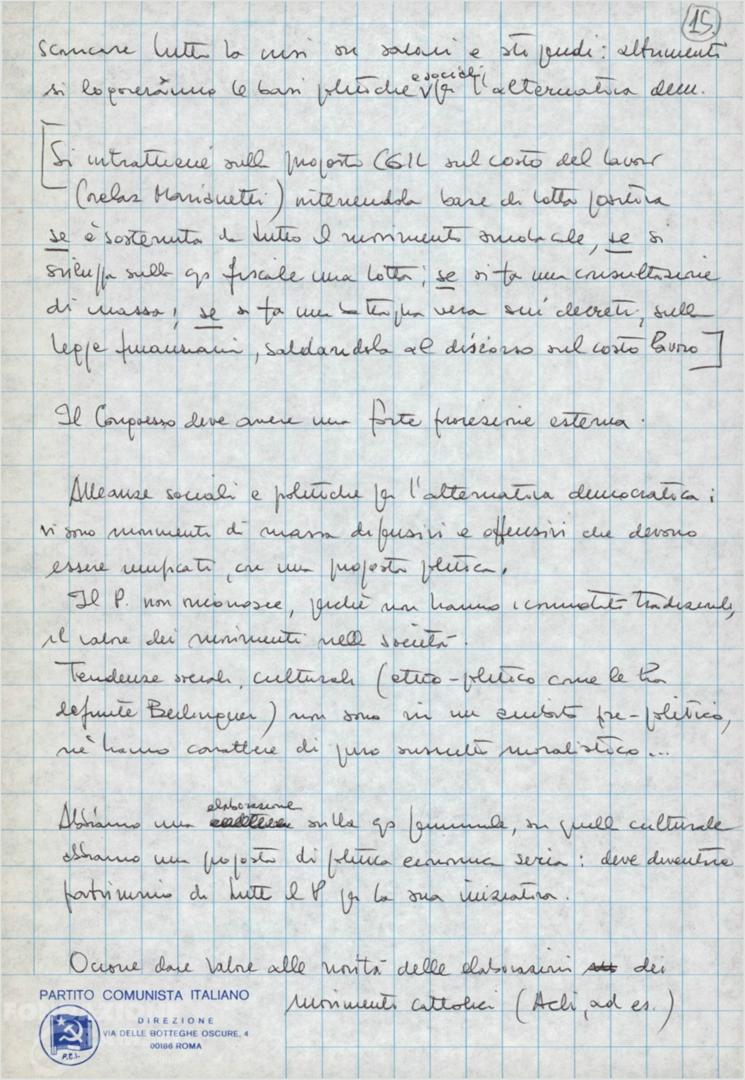 15.
scaricare tutta la crisi su salari e stipendi: altrimenti
si logoreranno le basi politiche e sociali per l'alternativa dem.
[Si intrattiene sulla proposta CGIL sul costo del lavoro
(relaz. Marianetti) ritenendola base di lotta positiva
se è sostenuta da tutto il movimento sindacale, se si
sviluppa sulla qs fiscale una lotta; se si fa una consultazione
di massa; se si fa una battaglia vera sui decreti, sulla
legge finanziaria, saldandola al discorso sul costo lavoro]
Il Congresso deve avere una forte proiezione esterna.
Alleanze sociali e politiche per l'alternativa democratica;
vi sono movimenti di massa difensivi e offensivi che devono
essere unificati, con una proposta politica.
Il P. non riconosce, perché non hanno i connotati tradizionali,
il valore dei movimenti nella società.
Tendenze sociali, culturali (etico-politico come le ha
definite Berlinguer) non sono in un ambito pre-politico,
né hanno carattere di puro sussulto moralistico...
Abbiamo una elaborazione sulla qs femminile, su quella culturale
abbiamo una proposta di politica economica seria: deve diventare
patrimonio di tutto il P per la sua iniziativa.
Occorre dare valore alle novità delle elaborazioni dei
movimenti cattolici (Acli, ad es.)
PARTITO COMUNISTA ITALIANO
DIREZIONE
VIA DELLE BOTTEGHE OSCURE, 4
00186 ROMA
P.C.I.